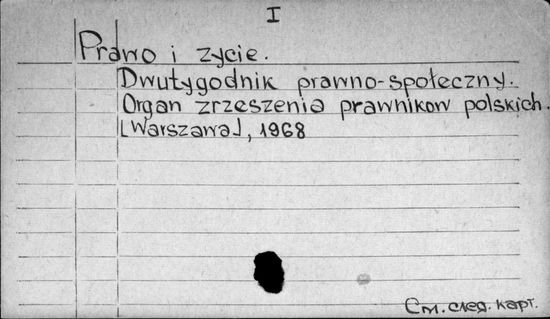 I
Prawo i zycie.
Dwutygodnik prawno-społeczny.
Organ zrzeszenia prawnikow polskich.
[Warszawa], 1968
См. след. карт.